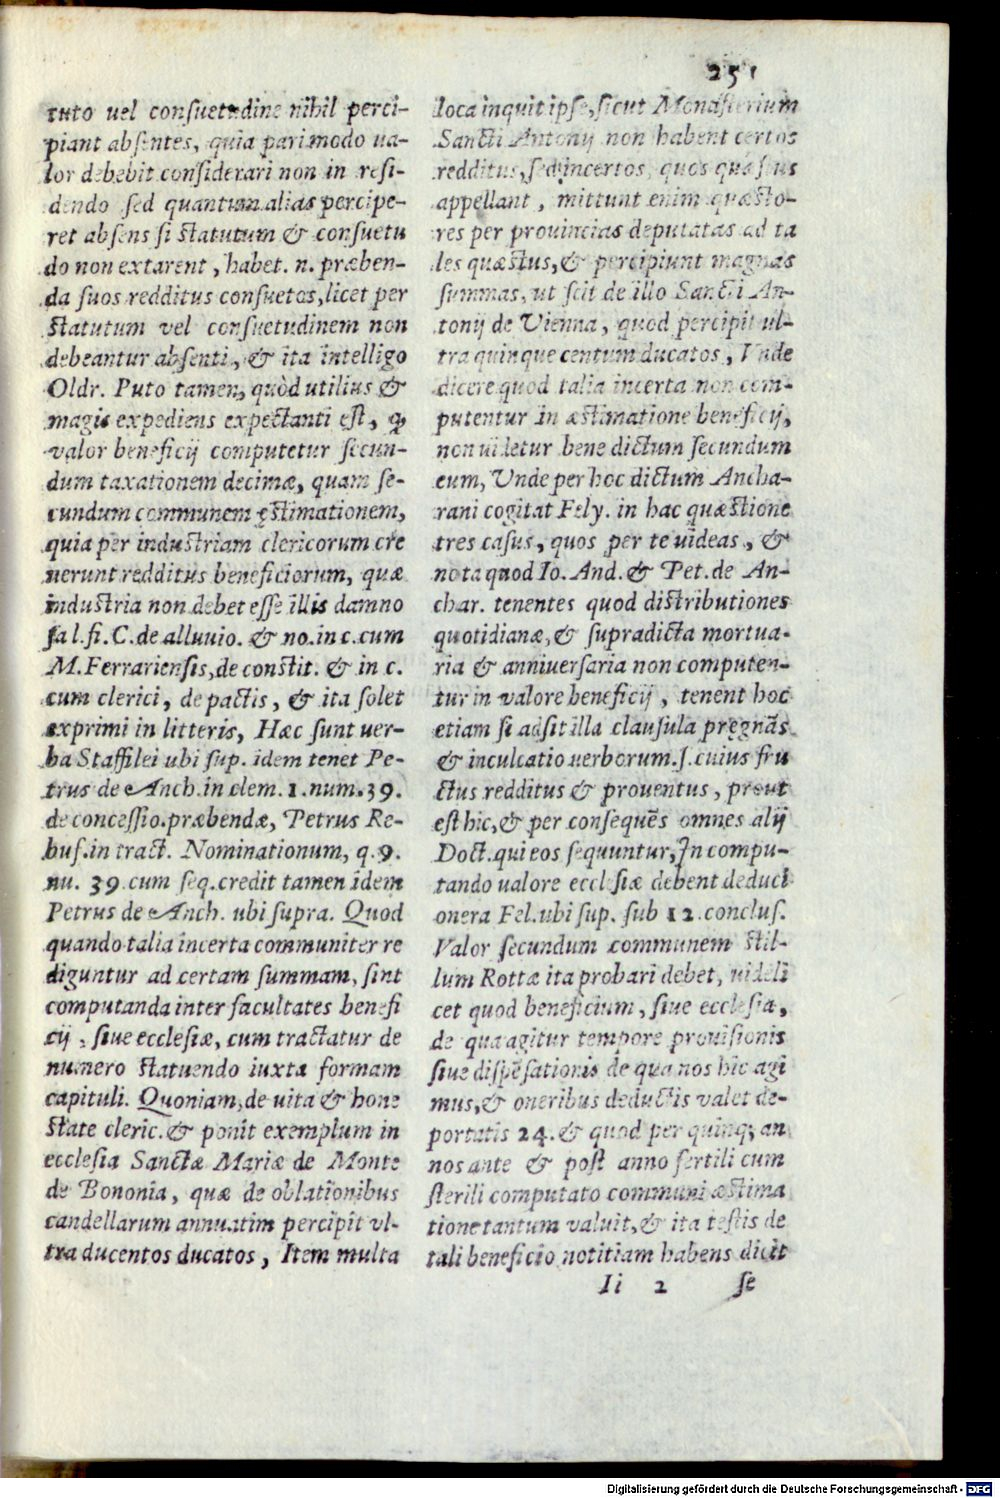 251
tuto vel consuetudine nihil perci-
piant absentes, quia pari modo ua-
lor debebit considerari non in resi-
dendo sed quantum alias percipe-
ret absens si statutum & consuetu
do non extarent, habet. n. præben-
da suos redditus consuetos, licet per
statutum vel consuetudinem non
debeantur absenti, & ita intelligo
Oldr. Puto tamen, quòd utilius &
magis expediens expectanti est, ꝙ
valor beneficij computetur secun-
dum taxationem decimæ, quam se-
cundum communem ęstimationem,
quia per industriam clericorum cre
uerunt redditus beneficiorum, quæ
industria non debet esse illis damno
fa l. fi. C. de alluuio. & no. in c. cum
M. Ferrariensis, de constit. & in c.
cum clerici, de pactis, & ita solet
exprimi in litteris, Hæc sunt uer-
ba Staffilei ubi sup. idem tenet Pe-
trus de Anch. in clem. 1. num. 39.
de concessio. præbendæ, Petrus Re-
buf. in tract. Nominationum, q. 9.
nu. 39. cum seq. credit tamen idem
Petrus de Anch. ubi supra. Quod
quando talia incerta communiter re
diguntur ad certam summam, sint
computanda inter facultates benefi
cij, siue ecclesiæ, cum tractatur de
numero statuendo iuxta formam
capituli. Quoniam, de uita & hone
state cleric. & ponit exemplum in
ecclesia Sanctæ Mariæ de Monte
de Bononia, quæ de oblationibus
candellarum annuatim percipit vl-
tra ducentos ducatos, Item multa
loca inquit ipse, sicut Monasterium
Sancti Antonij non habent certos
redditus, sed incertos, quos quæstus
appellant, mittunt enim quæsto-
res per prouincias deputatas ad ta
les quæstus, & percipiunt magnas
summas, ut scit de illo Sancti An-
tonij de Vienna, quod percipit ul-
tra quinque centum ducatos, Vnde
dicere quod talia incerta non com-
putentur in æstimatione beneficij,
non uidetur bene dictum secundum
eum, Vnde per hoc dictum Ancha-
rani cogitat Fely. in hac quæstione
tres casus, quos per te uideas, &
nota quod Io. And. & Pet. de An-
char. tenentes quod distributiones
quotidianæ, & supradicta mortua-
ria & anniuersaria non computen-
tur in valore beneficij, tenent hoc
etiam si adsit illa clausula pregnās
& inculcatio uerborum. s. cuius fru
ctus redditus & prouentus, prout
est hic, & per consequēs omnes alij
Doct. qui eos sequuntur, In compu-
tando ualore ecclesiæ debent deduci
onera Fel. ubi sup. sub 12. conclus.
Valor secundum communem stil-
lum Rottæ ita probari debet, uideli
cet quod beneficium, siue ecclesia,
de qua agitur tempore prouisionis
siue dispēsationis de qua nos hic agi
mus, & oneribus deductis valet de-
portatis 24. & quod per quinq; an
nos ante & post anno fertili cum
sterili computato communi æstima
tione tantum valuit, & ita testis de
tali beneficio notitiam habens dicit
Ii 2 se
Digitalisierung gefördert durch die Deutsche Forschungsgemeinschaft - DFG